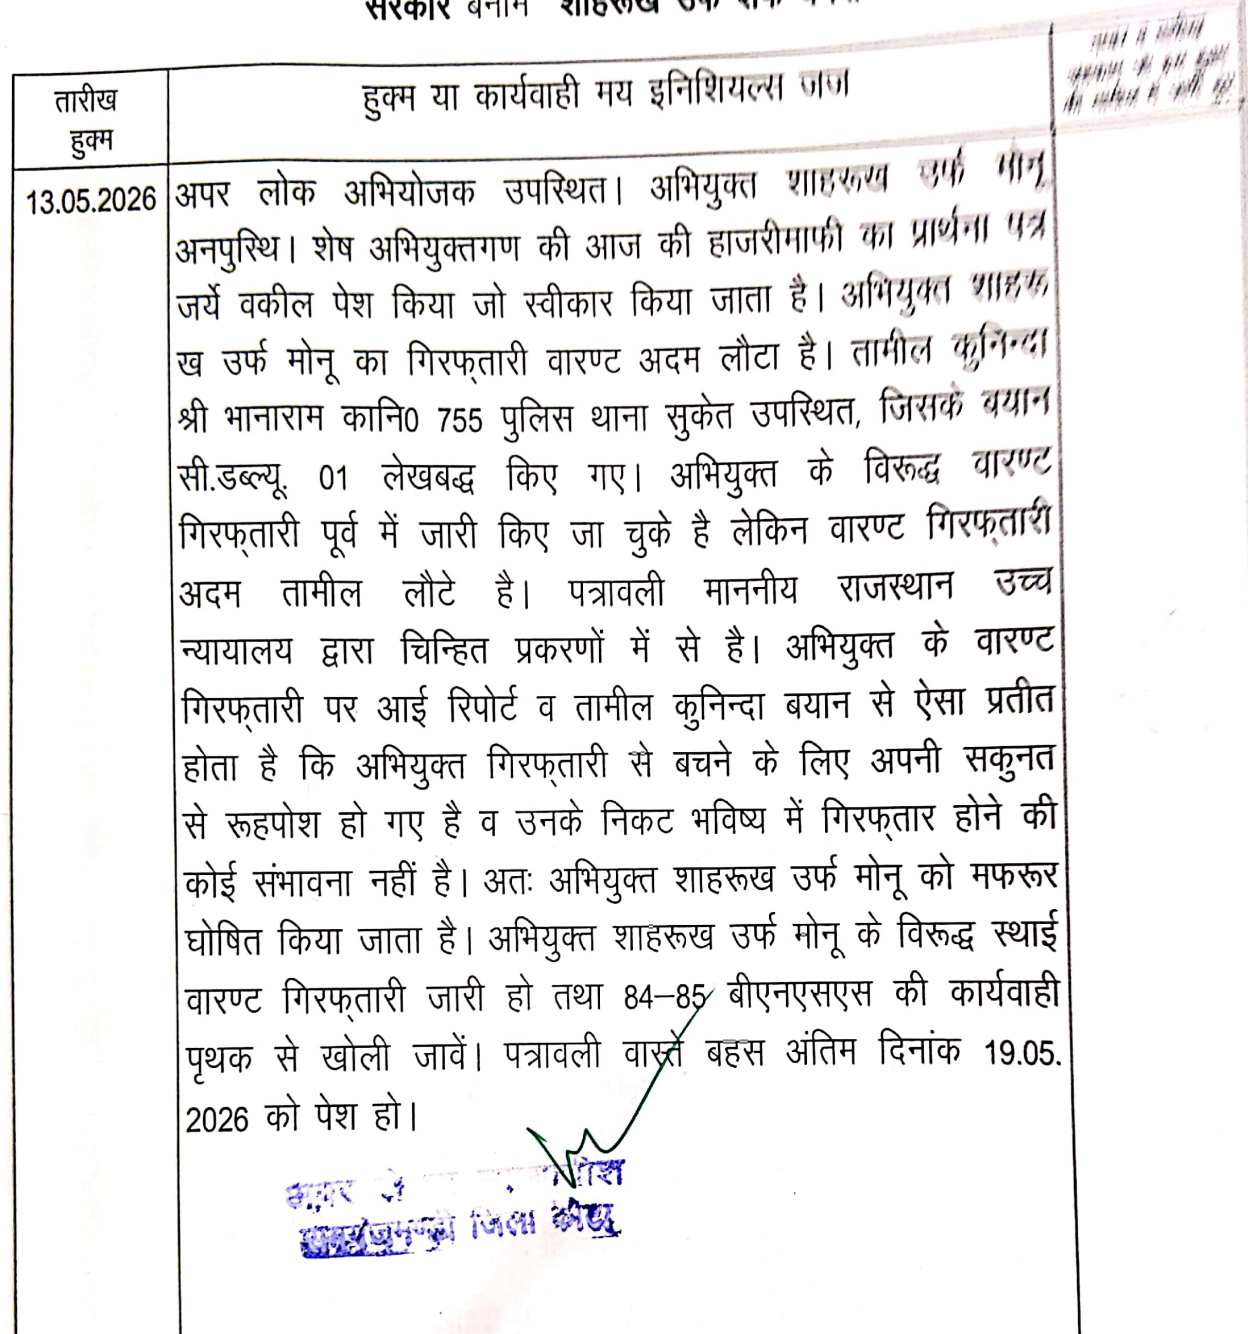 सरकार बनाम शाहरूख उर्फ
तारीख
हुक्म
हुक्म या कार्यवाही मय इनिशियल्स जज
13.05.2026
अपर लोक अभियोजक उपस्थित। अभियुक्त शाहरूख उर्फ मोनू
अनपुस्थि। शेष अभियुक्तगण की आज की हाजरीमाफी का प्रार्थना पत्र
जर्ये वकील पेश किया जो स्वीकार किया जाता है। अभियुक्त शाहरू
ख उर्फ मोनू का गिरफ्तारी वारण्ट अदम लौटा है। तामील कुनिन्दा
श्री भानाराम कानि0 755 पुलिस थाना सुकेत उपस्थित, जिसके बयान
सी.डब्ल्यू. 01 लेखबद्ध किए गए। अभियुक्त के विरूद्ध वारण्ट
गिरफ्तारी पूर्व में जारी किए जा चुके है लेकिन वारण्ट गिरफ्तारी
अदम तामील लौटे है। पत्रावली माननीय राजस्थान उच्च
न्यायालय द्वारा चिन्हित प्रकरणों में से है। अभियुक्त के वारण्ट
गिरफ्तारी पर आई रिपोर्ट व तामील कुनिन्दा बयान से ऐसा प्रतीत
होता है कि अभियुक्त गिरफ्तारी से बचने के लिए अपनी सकुनत
से रूहपोश हो गए है व उनके निकट भविष्य में गिरफ्तार होने की
कोई संभावना नहीं है। अतः अभियुक्त शाहरूख उर्फ मोनू को मफरूर
घोषित किया जाता है। अभियुक्त शाहरूख उर्फ मोनू के विरूद्ध स्थाई
वारण्ट गिरफ्तारी जारी हो तथा 84–85 बीएनएसएस की कार्यवाही
पृथक से खोली जावें। पत्रावली वास्ते बहस अंतिम दिनांक 19.05.
2026 को पेश हो।
अपर
जिला कोटा